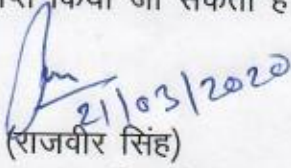 किया जा सकता है
21/03/2020
(राजवीर सिंह)